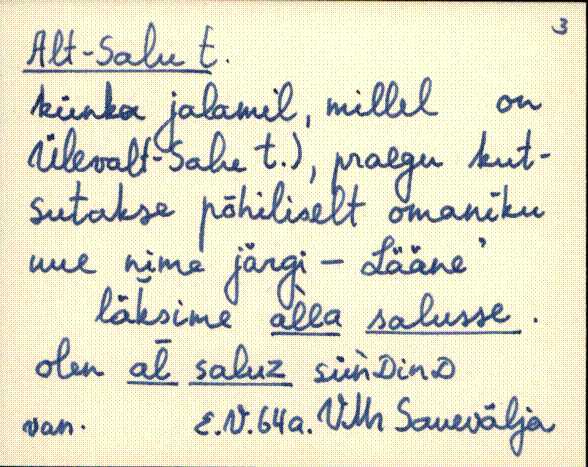 3
Alt-Salu t.
künka jalamil, millel on
Ülevalt-Salu t.), praegu kut-
sutakse põhiliselt omaniku
uue nime järgi – Lääne'
läksime al̀la salusse.
olen al̄ saluz süǹDinD
van. E.V. 64a. VMr Sauevälja